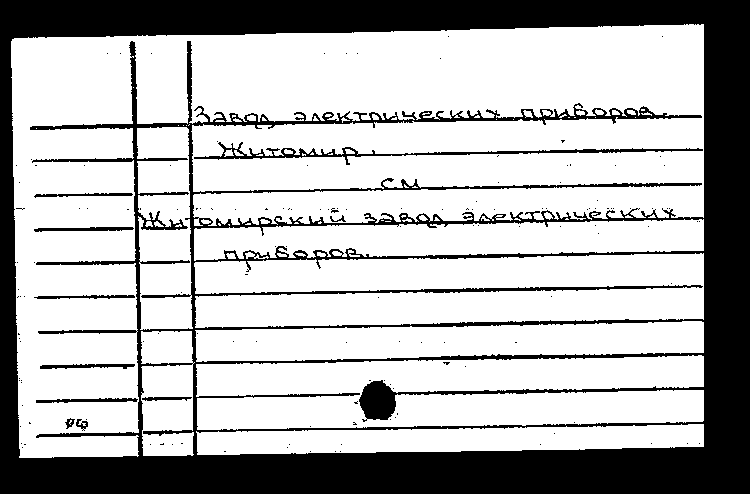 Завод электрических приборов.
Житомир.
см
Житомирский завод электрических
приборов.